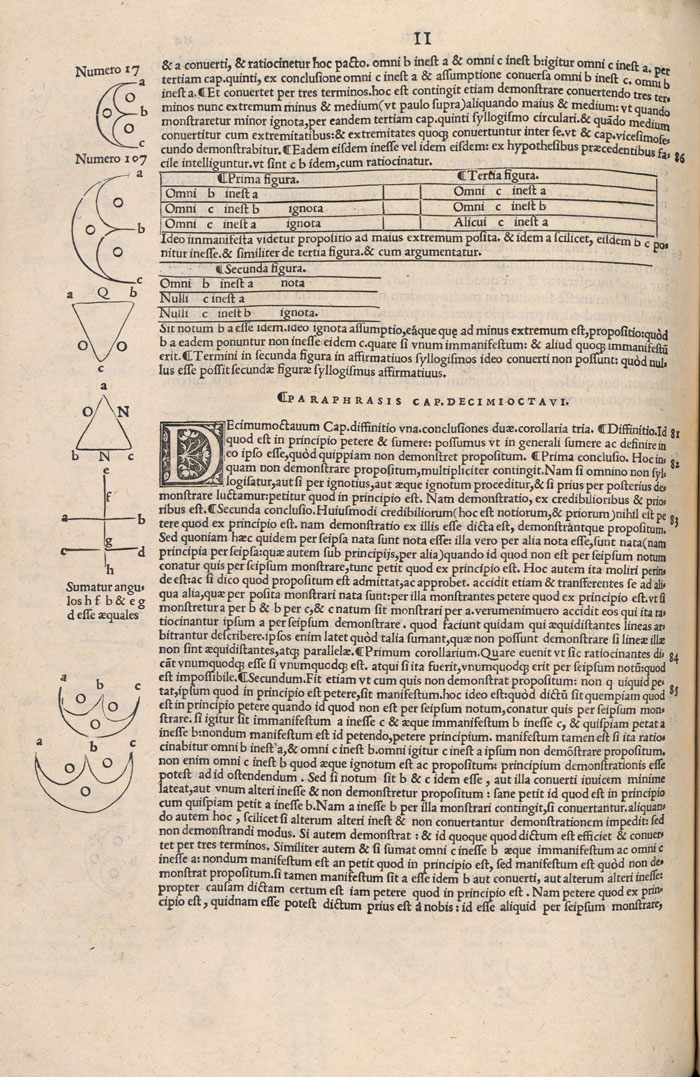 II
Numero 17
a
b
c
Numero 107
a
b
c
O
O
O
O
O
a Q b
O O
c
a
O N
b N c
e
f
a b
g
c d
h
Sumatur angu-
los h f b & e g
d esse æquales
a b c
O O
O
a b c
O O
O
& a conuerti, & ratiocinetur hoc pacto. omni b inest a & omni c inest b:igitur omni c inest a. per
tertiam cap.quinti, ex conclusione omni c inest a & assumptione conuersa omni b inest c. omni b
inest a.¶Et conuertet per tres terminos.hoc est contingit etiam demonstrare conuertendo tres ter-
minos nunc extremum minus & medium(vt paulo supra)aliquando maius & medium: vt quando
monstraretur minor ignota,per eandem tertiam cap.quinti syllogismo circulari.& quādo medium
conuertitur cum extremitatibus:& extremitates quoq; conuertuntur inter se.vt & cap.vicesimose-
cundo demonstrabitur.¶Eadem eisdem inesse vel idem eisdem: ex hypothesibus præcedentibus fa-
cile intelliguntur.vt sint c b idem,cum ratiocinatur.
86
¶Prima figura. ¶Tertia figura.
Omni b inest a Omni c inest a
Omni c inest b ignota Omni c inest b
Omni c inest a ignota Alicui c inest a
Ideo immanifesta videtur propositio ad maius extremum posita. & idem a scilicet, eisdem b c po-
nitur inesse.& similiter de tertia figura.& cum argumentatur.
¶Secunda figura.
Omni b inest a nota
Nulli c inest a
Nulli c inest b ignota.
Sit notum b a esse idem.ideo ignota assumptio,eáque quę ad minus extremum est,propositio:quòd
b a eadem ponuntur non inesse eidem c.quare si vnum immanifestum: & aliud quoq; immanifestū
erit.¶Termini in secunda figura in affirmatiuos syllogismos ideo conuerti non possunt: quòd nul-
lus esse possit secundæ figuræ syllogismus affirmatiuus.
¶PARAPHRASIS CAP.DECIMIOCTAVI.
DEcimumoctauum Cap.diffinitio vna.conclusiones duæ.corollaria tria. ¶Diffinitio.Id
quod est in principio petere & sumere: possumus vt in generali sumere ac definire in
eo ipso esse,quòd quippiam non demonstret propositum. ¶Prima conclusio. Hoc in-
quam non demonstrare propositum,multipliciter contingit.Nam si omnino non syl-
logisatur,aut si per ignotius,aut æque ignotum proceditur,& si prius per posterius de-
monstrare luctamur:petitur quod in principio est. Nam demonstratio, ex credibilioribus & prio-
ribus est.¶Secunda conclusio.Huiusmodi credibiliorum(hoc est notiorum,& priorum)nihil est pe
tere quod ex principio est. nam demonstratio ex illis esse dicta est, demonstrántque propositum.
Sed quoniam hæc quidem per seipsa nata sunt nota esse: illa vero per alia nota esse,sunt nata(nam
principia per seipsa:quæ autem sub principijs,per alia)quando id quod non est per seipsum notum
conatur quis per seipsum monstrare,tunc petit quod ex principio est. Hoc autem ita moliri perin-
de est:ac si dico quod propositum est admittat,ac approbet. accidit etiam & transferentes se ad ali-
qua alia,quæ per posita monstrari nata sunt:per illa monstrantes petere quod ex principio est.vt si
monstretur a per b & b per c,& c natum sit monstrari per a.verumenimuero accidit eos qui ita ra-
tiocinantur ipsum a per seipsum demonstrare. quod faciunt quidam qui æquidistantes lineas ar-
bitrantur describere.ipsos enim latet quòd talia sumant,quæ non possunt demonstrare si lineæ illæ
non sint æquidistantes,atq; parallelæ.¶Primum corollarium.Quare euenit vt sic ratiocinantes di-
cāt vnumquodq; esse si vnumquodq; est. atqui si ita fuerit,vnumquodq; erit per seipsum notū:quod
est impossibile.¶Secundum.Fit etiam vt cum quis non demonstrat propositum: non q uiquid pe-
tat,ipsum quod in principio est petere,sit manifestum.hoc ideo est:quòd dictū sit quempiam quod
est in principio petere quando id quod non est per seipsum notum,conatur quis per seipsum mon-
strare. si igitur sit immanifestum a inesse c & æque immanifestum b inesse c, & quispiam petat a
inesse b:nondum manifestum est id petendo,petere principium. manifestum tamen est si ita ratio-
cinabitur omni b inest a,& omni c inest b.omni igitur c inest a ipsum non demōstrare propositum.
non enim omni c inest b quod æque ignotum est ac propositum: principium demonstrationis esse
potest ad id ostendendum . Sed si notum sit b & c idem esse , aut illa conuerti inuicem minime
lateat,aut vnum alteri inesse & non demonstretur propositum : sane petit id quod est in principio
cum quispiam petit a inesse b.Nam a inesse b per illa monstrari contingit,si conuertantur.aliquan-
do autem hoc , scilicet si alterum alteri inest & non conuertantur demonstrationem impedit: sed
non demonstrandi modus. Si autem demonstrat : & id quoque quod dictum est efficiet & conuer-
tet per tres terminos. Similiter autem & si sumat omni c inesse b æque immanifestum ac omni c
inesse a: nondum manifestum est an petit quod in principio est, sed manifestum est quòd non de-
monstrat propositum.si tamen manifestum sit a esse idem b aut conuerti, aut alterum alteri inesse:
propter causam dictam certum est iam petere quod in principio est . Nam petere quod ex prin-
cipio est, quidnam esse potest dictum prius est á nobis: id esse aliquid per seipsum monstrare,
81
82
83
84
85